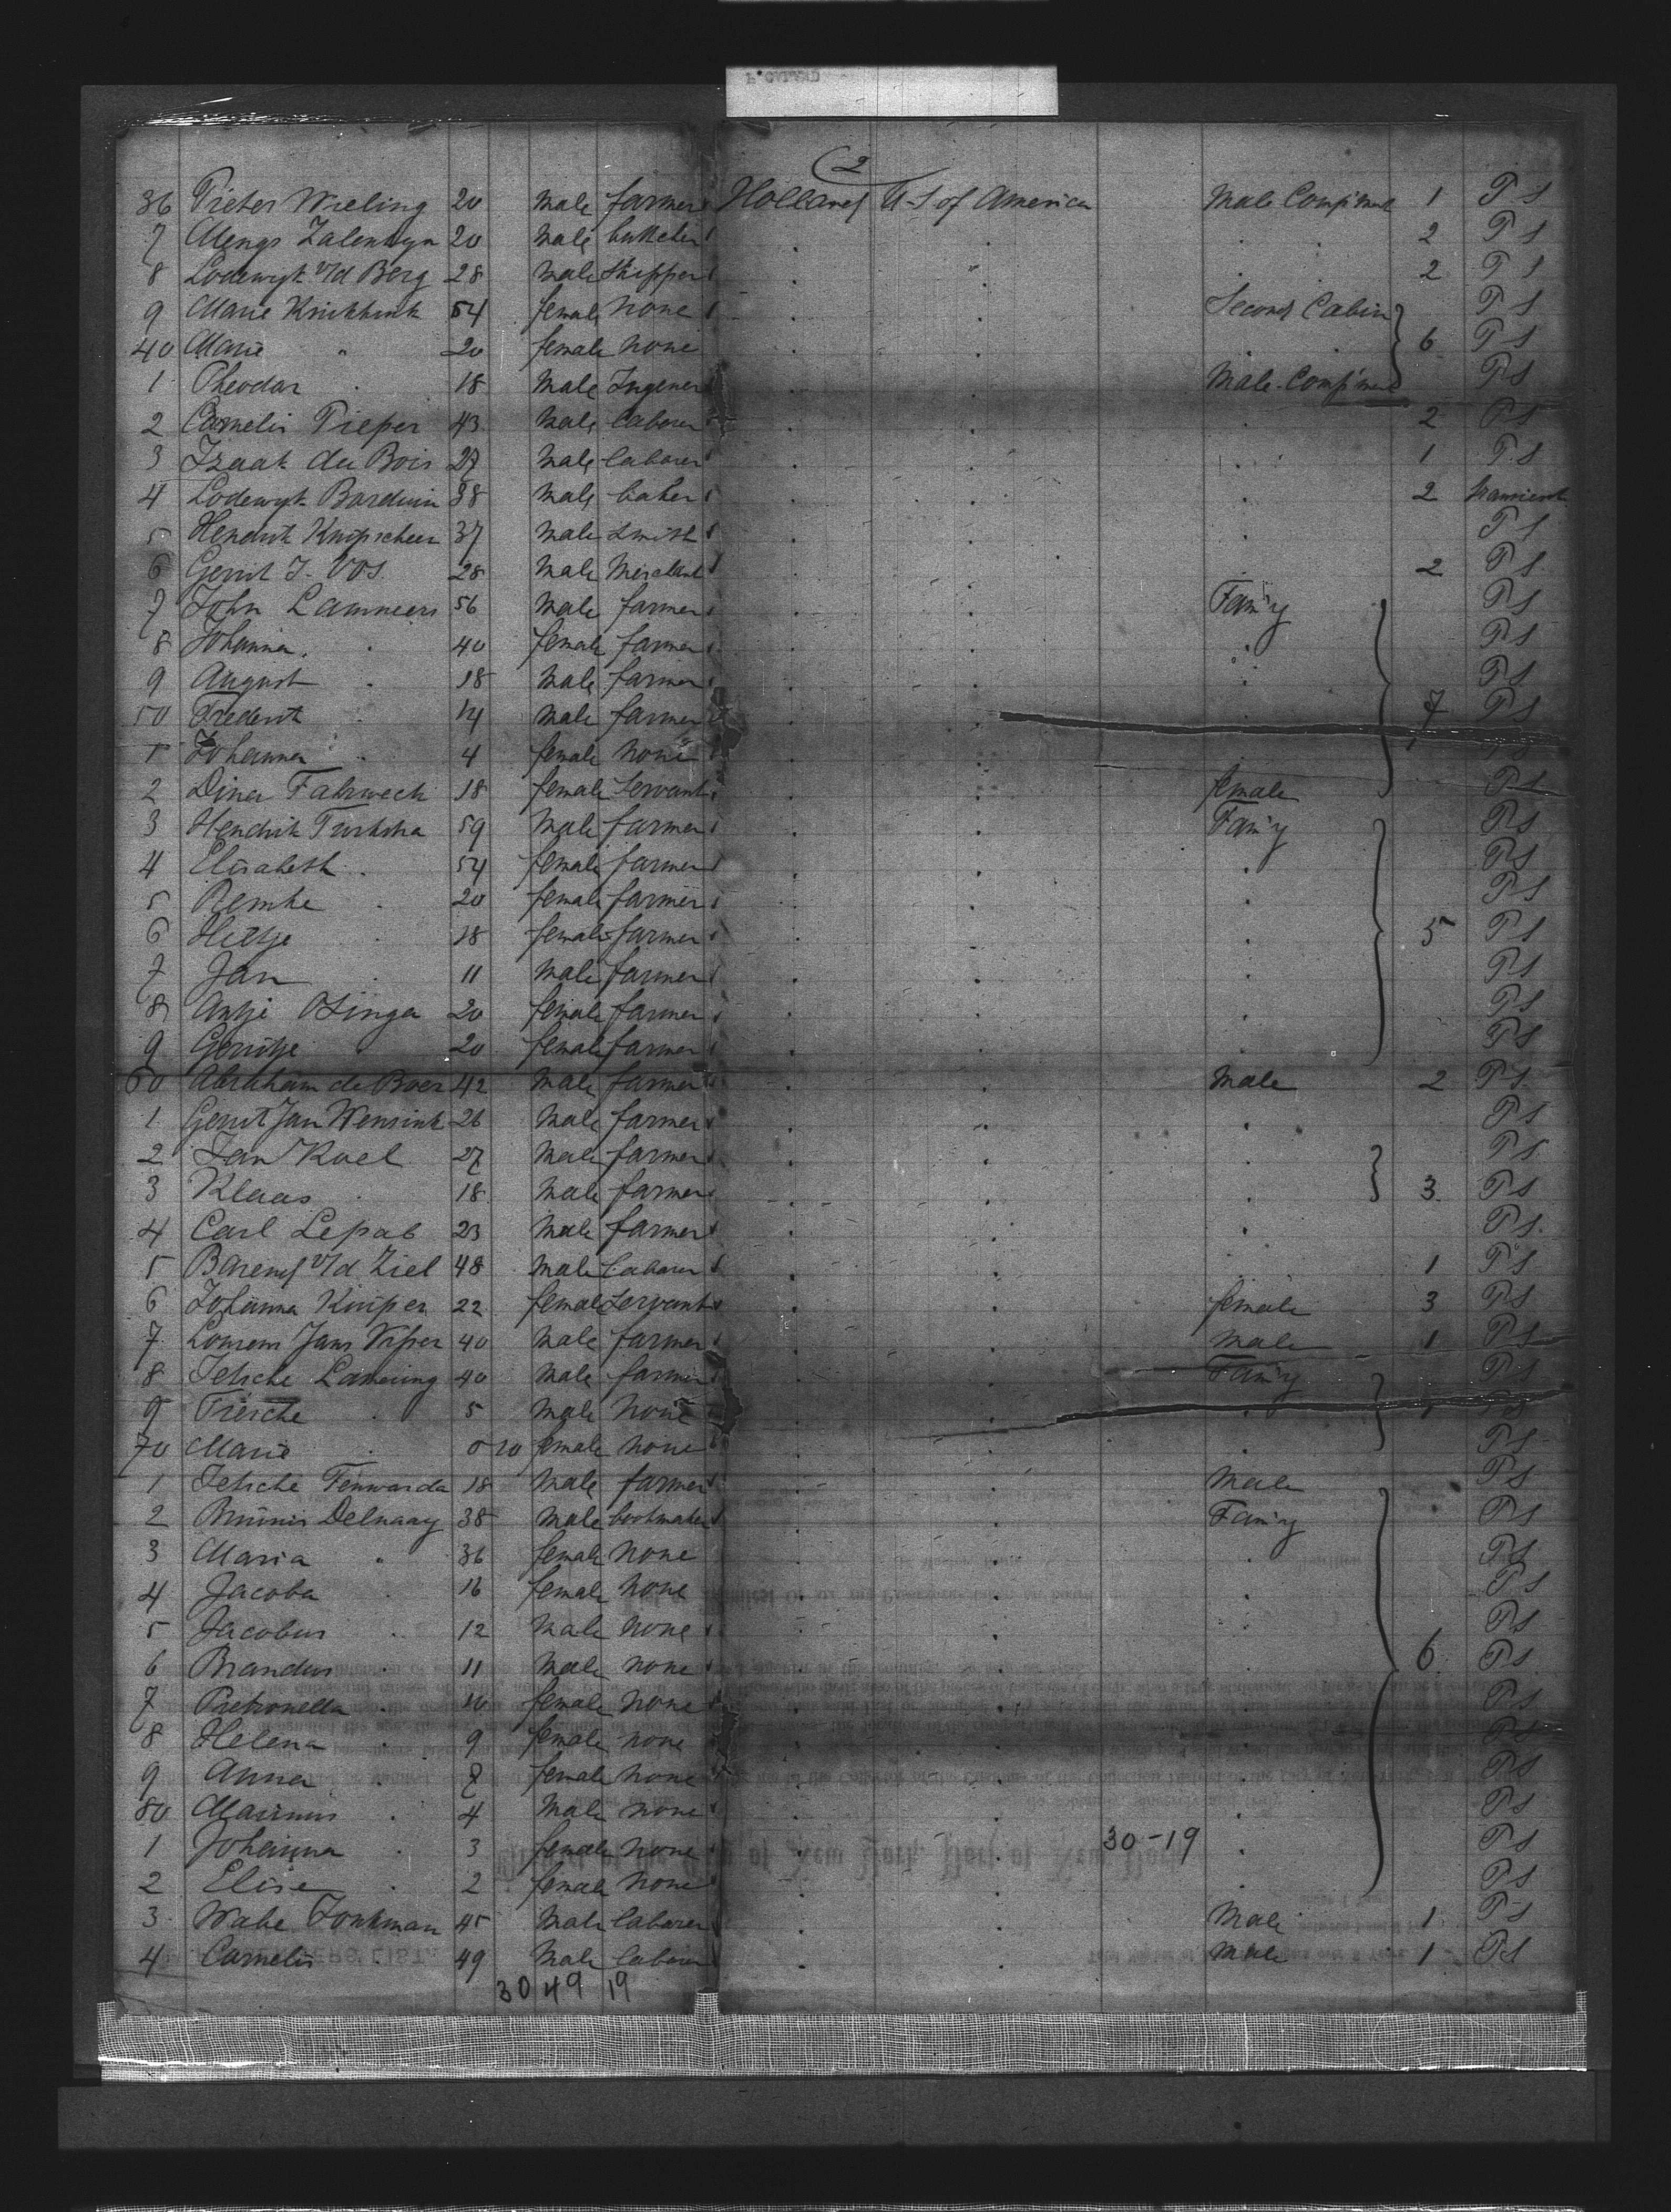 (2
36 Pieter Wieling 20 male farmer Holland U-S of America Male Comp'ment 1 P S
7 Mengs Zalentyn 20 male butcher . . . . 2 P S
8 Lodewyk v/d Berg 28 male Skipper . . . . 2 P S
9 Marie Krikkink 54 female none . . Second Cabin P S
40 Marie " 20 female none . . . . 6 P S
1 Theodor . 18 male Ingener . . Male Comp'ment P S
2 Cornelis Pieper 43 male laborer . . . 2 P S
3 Izaak du Bois 27 male laborer . . . 1 P S
4 Lodewyk Barduin 38 male baker . . . 2 transient
5 Hendrik Knipscheer 37 male Smith . . . P S
6 Gerrit J. Vos 28 male Merchant . . 2 P S
7 John Lammers 56 male farmer . . Fam'y P S
8 Johanna . 40 female farmer . . . P S
9 August . 18 male farmer . . . P S
50 Frederik . 14 male farmer . . . 7 P S
1 Johanna . 4 female none . . P S
2 Dina Fahrweck 18 female Servant . . female P S
3 Hendrik Turksha 59 male farmer . . Fam'y P S
4 Elisabeth . 54 female farmer . . . P S
5 Remke . 20 female farmer . . . P S
6 Hiltje . 18 female farmer . . . 5 P S
7 Jan . 11 male farmer . . . P S
8 Antje Osinga 20 female farmer . . . P S
9 Gerritje . 20 female farmer . . . P S
60 Abraham de Boer 42 male farmer . . male 2 P S
1 Gerrit Jan Wensink 26 male farmer . . . P S
2 Jan Roel 27 male farmer . . . P S
3 Klaas . 18 male farmer . . . 3 P S
4 Carl Lepab 23 male farmer . . . P S
5 Barend v/d Ziel 48 male laborer . . . 1 P S
6 Johanna Kuiper 22 female Servant . . female 3 P S
7 Lourens Jans Viper 40 male farmer . . male 1 P S
8 Jetsche Lanening 40 male farmer . . Fam'y P S
9 Tresche . 5 male none . . . P S
70 Marie . 0 10 female none . . . P S
1 Jetsche Fenwarda 18 male farmer . . male P S
2 Brunis Delnaay 38 male bootmaker . . Fam'y P S
3 Maria " 36 female none . . . P S
4 Jacoba . 16 female none . . . P S
5 Jacobus . 12 male none . . . P S
6 Brandus . 11 male none . . . 6 P S
7 Pietronella . 10 female none . . . P S
8 Helena . 9 female none . . . P S
9 Anna . 8 female none . . . P S
80 Marinus . 4 male none . . . P S
1 Johanna . 3 female none . . 30-19 . P S
2 Elise . 2 female none . . . P S
3 Wabe Jonkman 45 male laborer . . male 1 P S
4 Cornelis . 49 male laborer . . male 1 P S
30 49 19